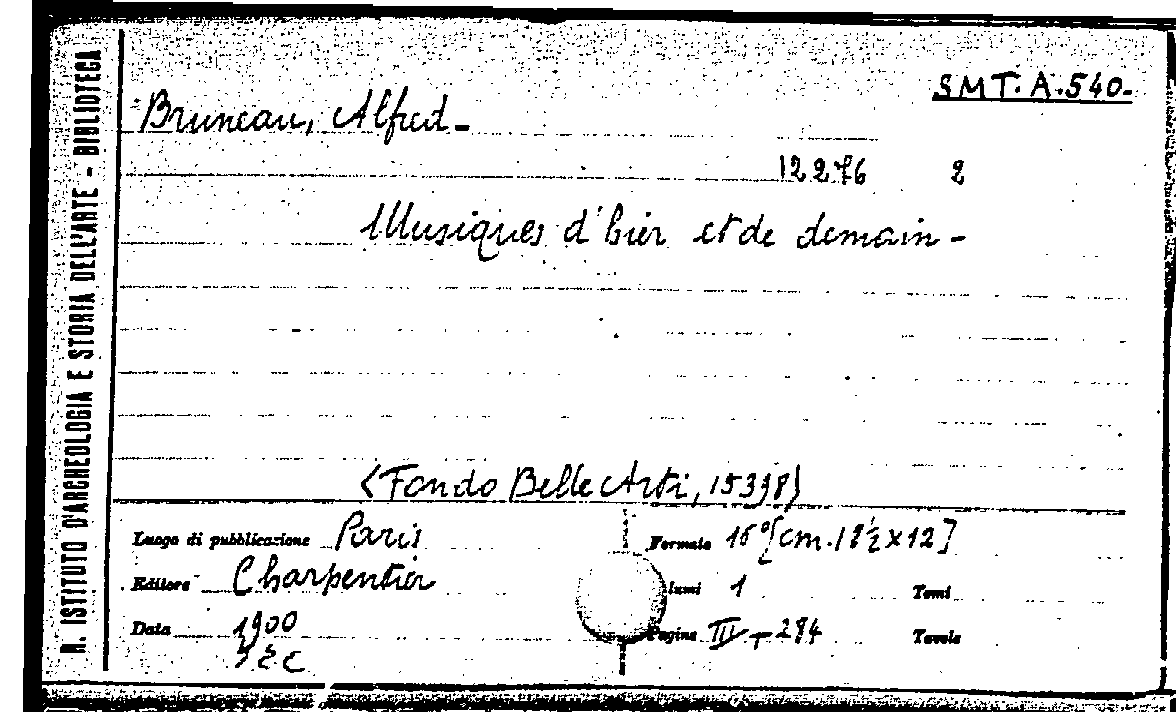 R. ISTITUTO D'ARCHEOLOGIA E STORIA DELL'ARTE - BIBLIOTECA
SMT. A. 540-
Bruneau, Alfred-
12276 2
Musiques d'hier et de demain-
(Fondo Belle Arti, 15398)
Luogo di pubblicazione Paris
Formato 16° [cm. 18½ x 12]
Editore Charpentier
lumi 1 Tomi
Data 1900
Pagine III + 284 Tavole